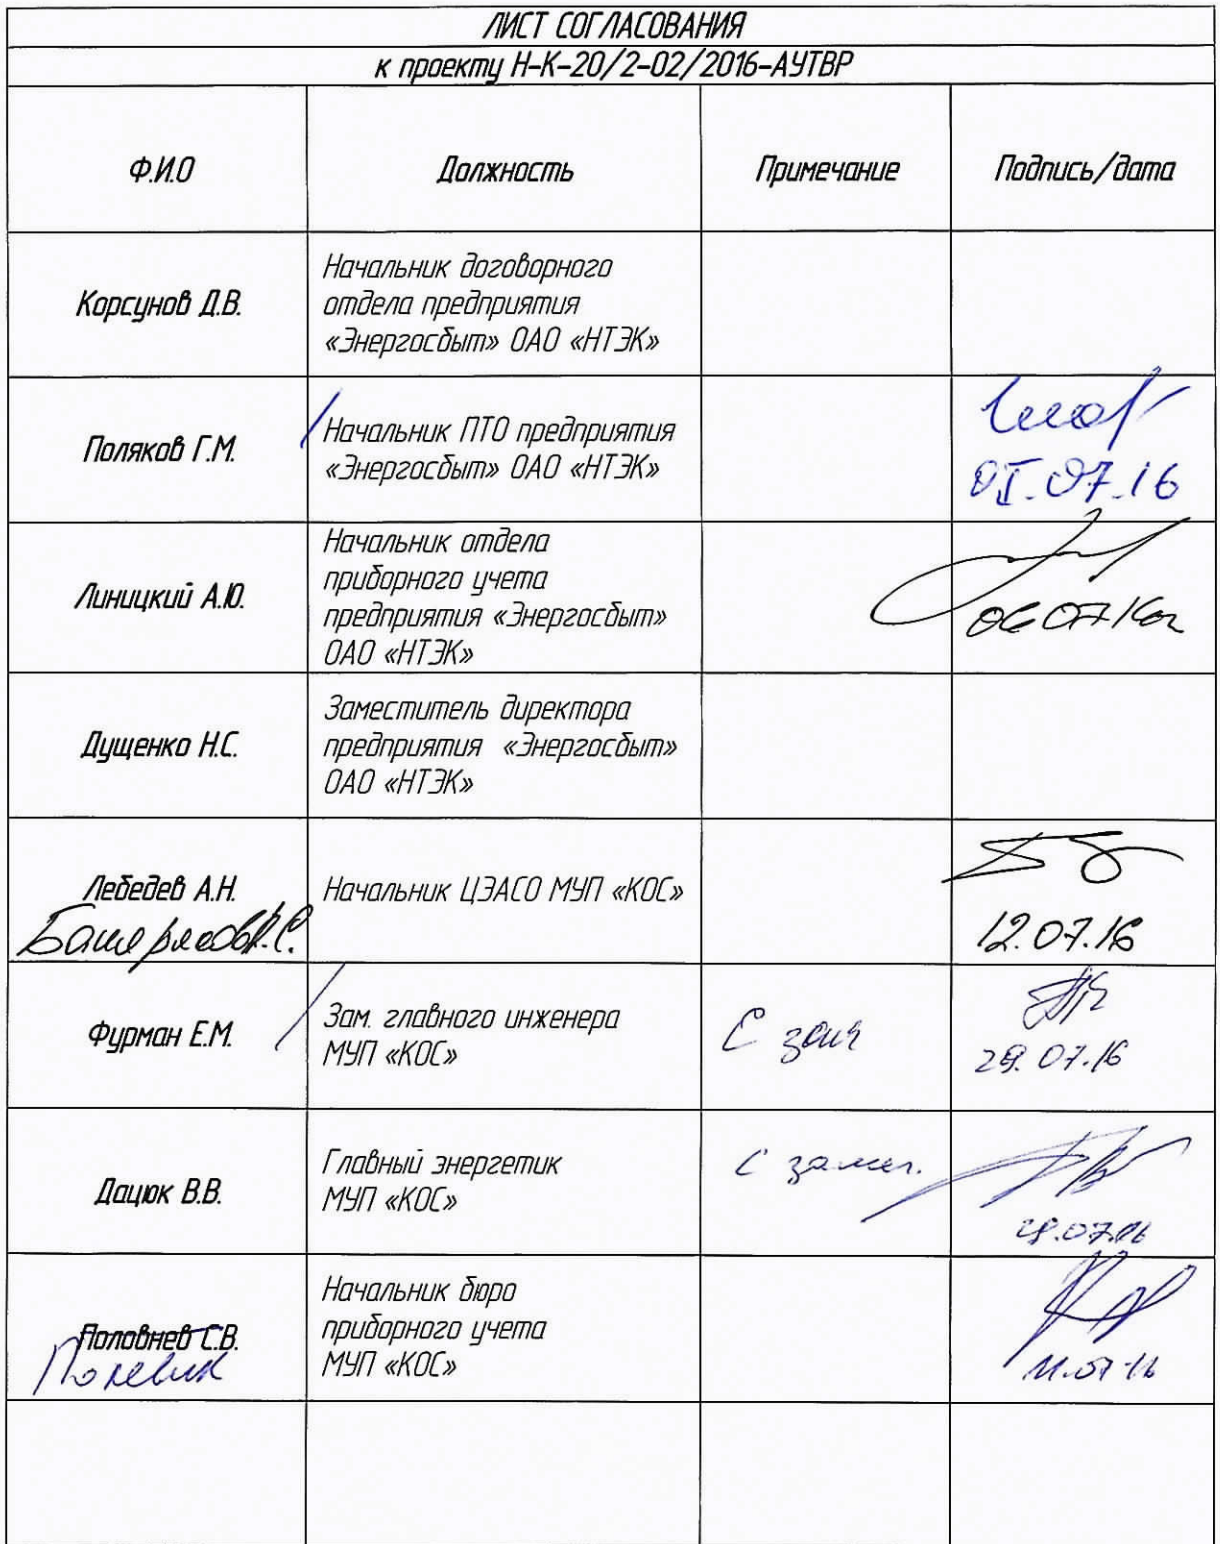 ЛИСТ СОГЛАСОВАНИЯ
к проекту Н-К-20/2-02/2016-АУТВР
Ф.И.О Должность Примечание Подпись/дата
Корсунов Д.В.
Начальник договорного
отдела предприятия
«Энергосбыт» ОАО «НТЭК»
Поляков Г.М.
Начальник ПТО предприятия
«Энергосбыт» ОАО «НТЭК»
07.16
Линицкий А.Ю.
Начальник отдела
приборного учета
предприятия «Энергосбыт»
ОАО «НТЭК»
06 07 16г
Дущенко Н.С.
Заместитель директора
предприятия «Энергосбыт»
ОАО «НТЭК»
Лебедев А.Н.
Начальник ЦЭАСО МУП «КОС»
12.07.16
Фурман Е.М.
Зам. главного инженера
МУП «КОС»
С зам
29.07.16
Дацюк В.В.
Главный энергетик
МУП «КОС»
С замеч.
28.07.16
Половнев С.В.
Начальник бюро
приборного учета
МУП «КОС»
11.07.16